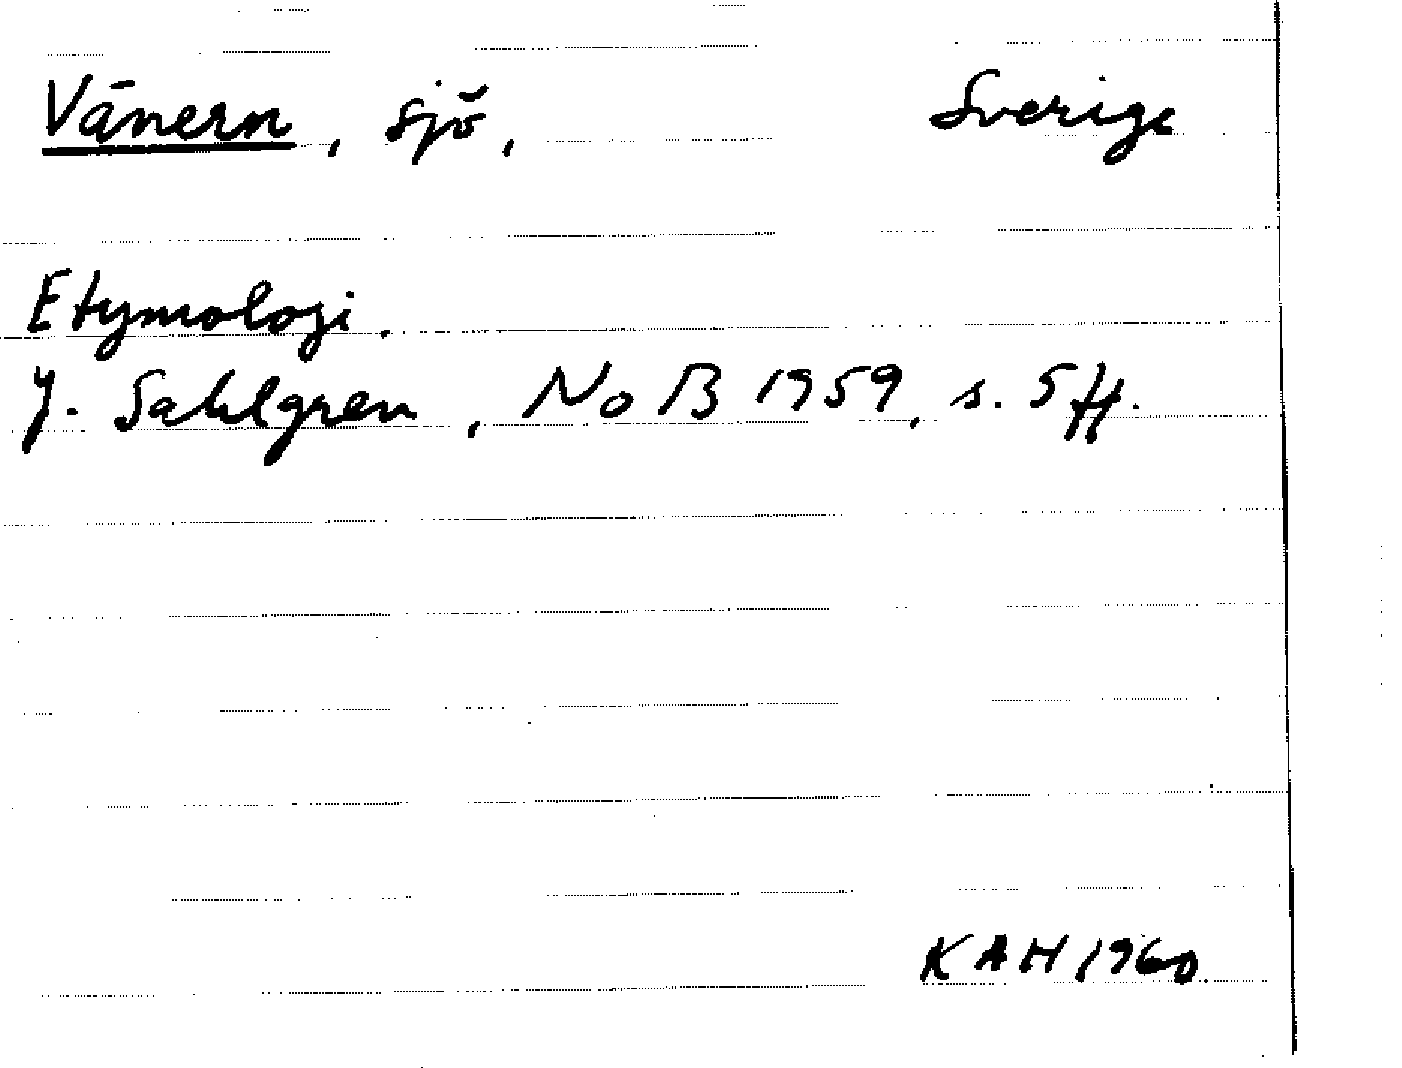 Vänern, sjö, Sverige
Etymologi.
J. Sahlgren, NoB 1959, s. 5 ff.
KAH 1960